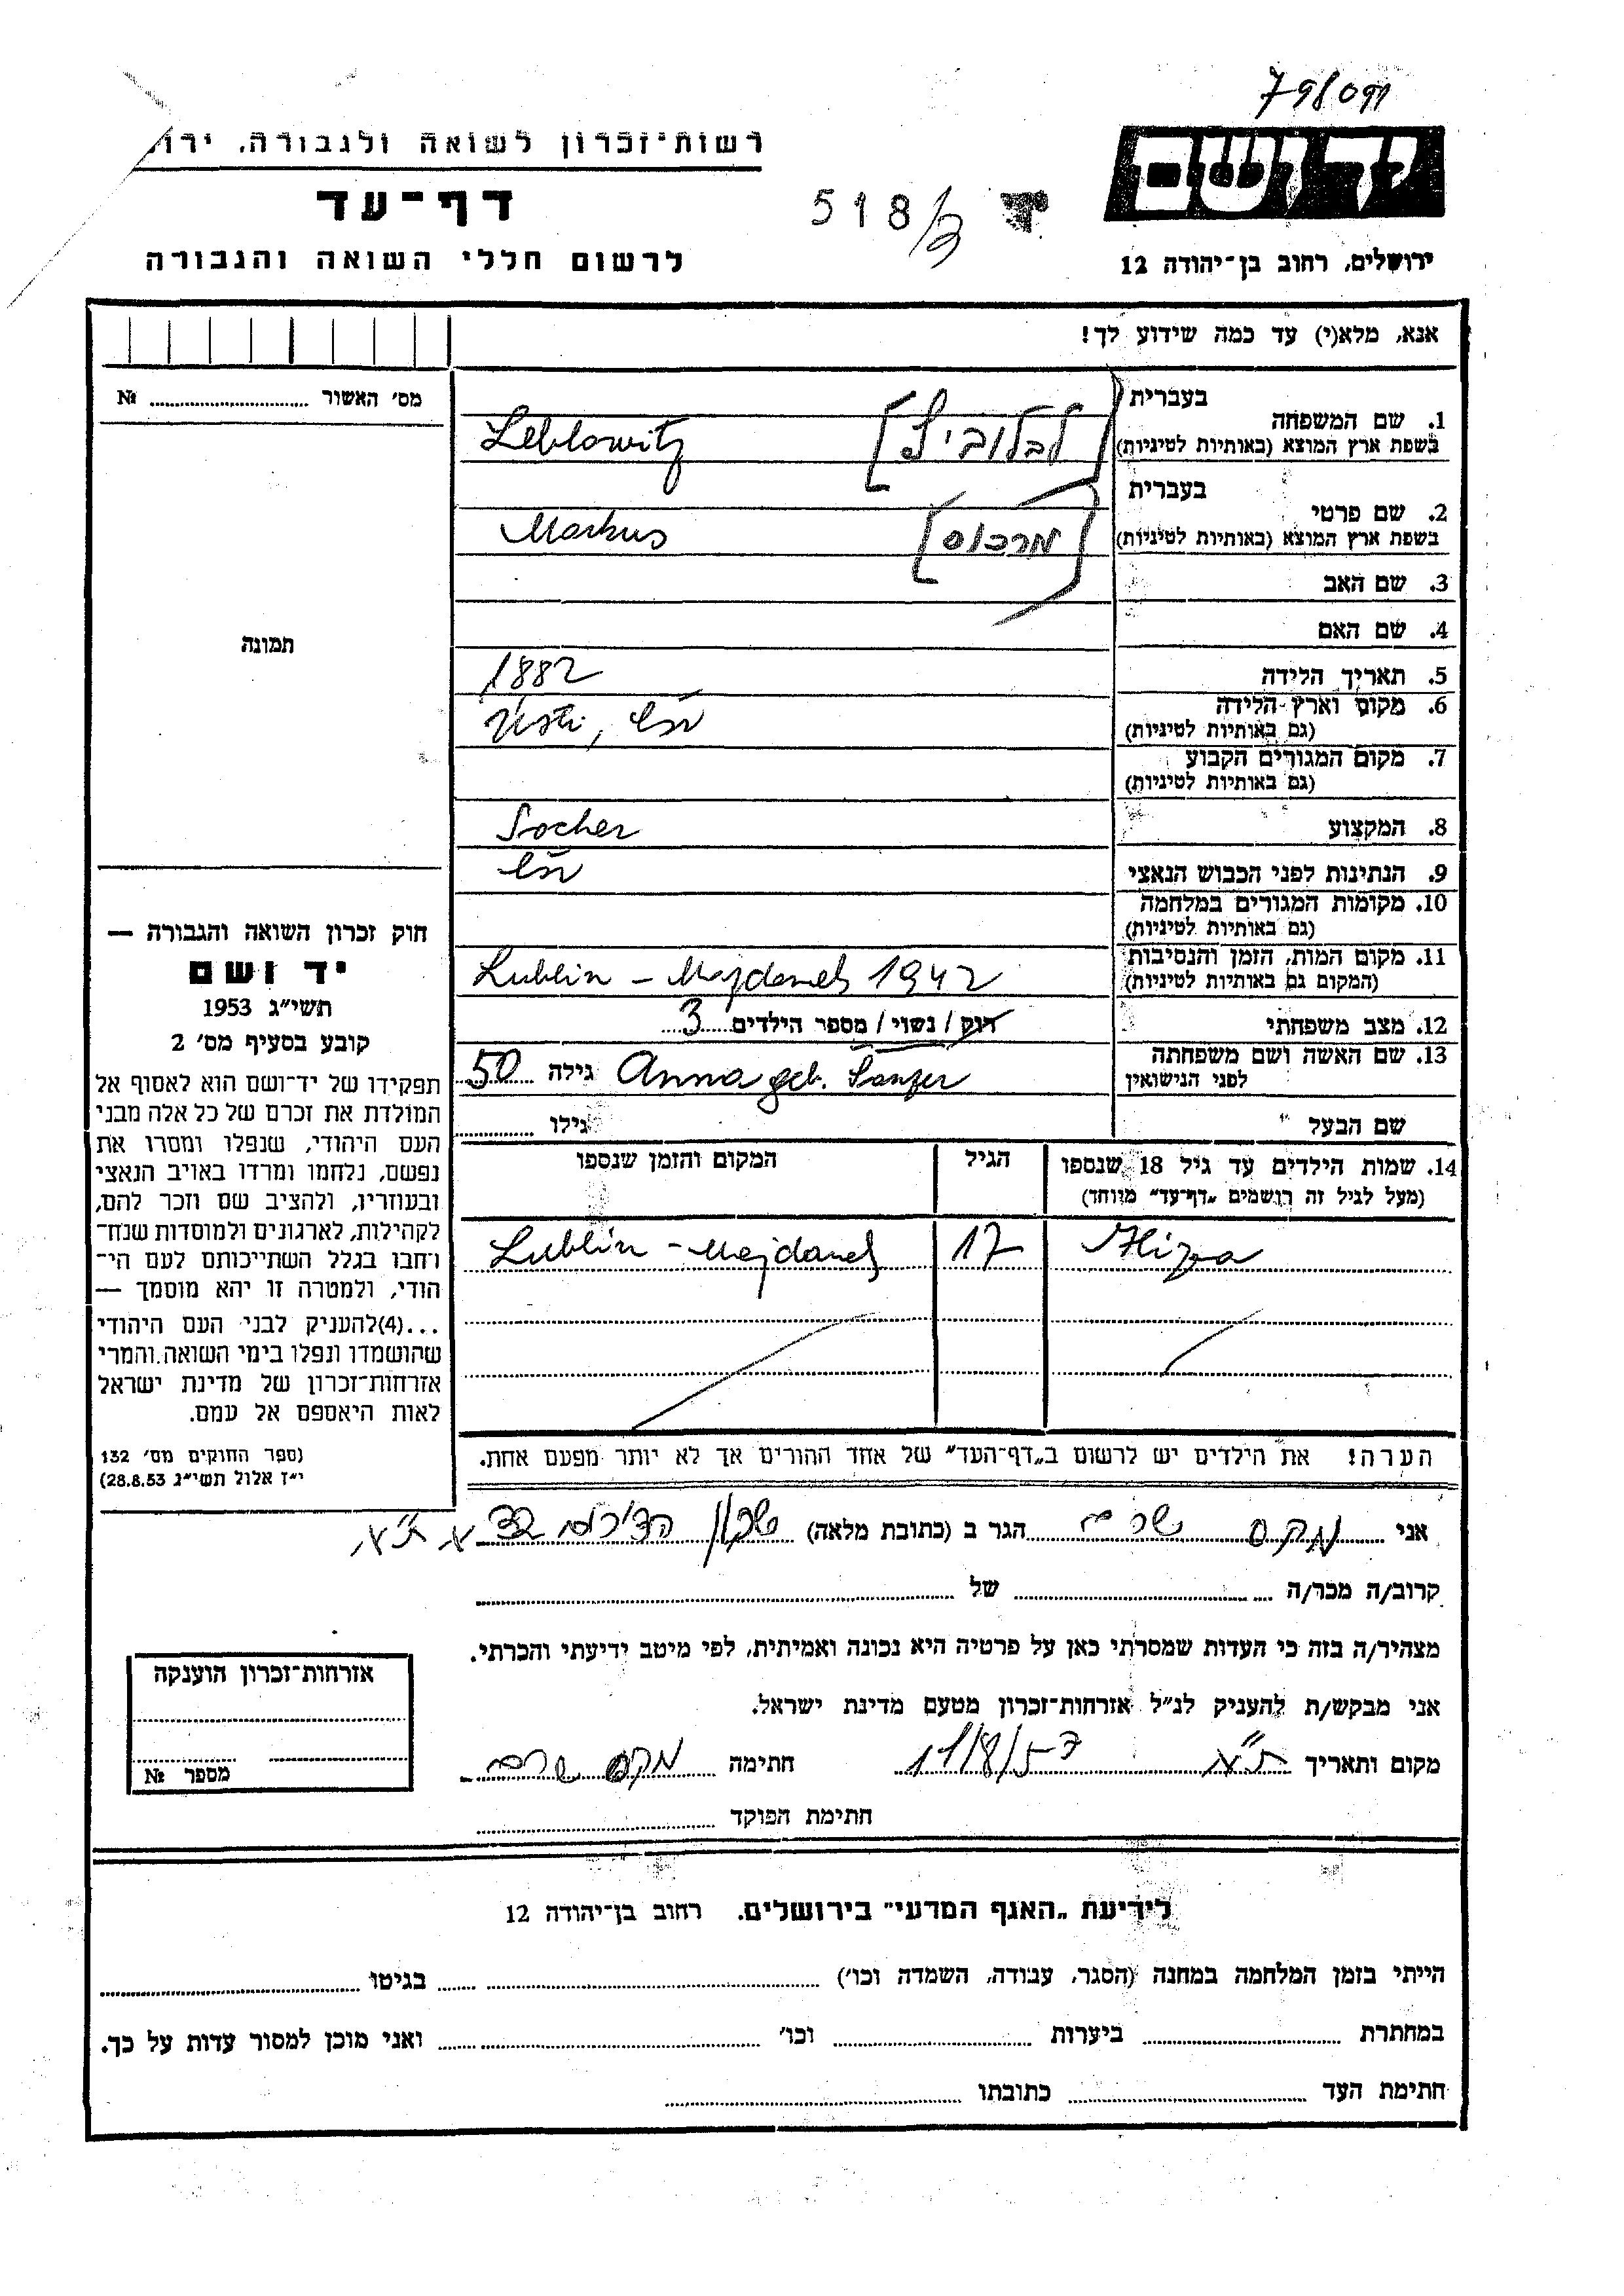 79/091
רשות־זכרון לשואה ולגבורה.
יד ושם
דף־עד
518/3
לרשום חללי השואה והגבורה
ירושלים, רחוב בן־יהודה 12
אנא, מלא(י) עד כמה שידוע לך!
מס׳ האשור № 
תמונה
חוק זכרון השואה והגבורה —
יד ושם
תשי״ג 1953
קובע בסעיף מס׳ 2
תפקידו של יד־ושם הוא לאסוף אל
המולדת את זכרם של כל אלה מבני
העם היהודי, שנפלו ומסרו את
נפשם, נלחמו ומרדו באויב הנאצי
ובעוזריו, ולהציב שם וזכר להם,
לקהילות, לארגונים ולמוסדות שנח־
רחבו בגלל השתייכותם לעם הי־
הודי, ולמטרה זו יהא מוסמך —
...(4)להעניק לבני העם היהודי
שהושמדו ונפלו בימי השואה והמרי
אזרחות־זכרון של מדינת ישראל
לאות היאספם אל עמם.
(ספר החוקים מס׳ 132
י״ז אלול תשי״ג 28.8.53)
בעברית
1. שם המשפחה [לבלוביץ] Leblowitz
בשפת ארץ המוצא (באותיות לטיניות)
בעברית
2. שם פרטי [מרכוס] Markus
בשפת ארץ המוצא (באותיות לטיניות)
3. שם האב
4. שם האם
5. תאריך הלידה 1882
6. מקום וארץ הלידה Ústi, čsr
(גם באותיות לטיניות)
7. מקום המגורים הקבוע
(גם באותיות לטיניות)
8. המקצוע Socher
9. הנתינות לפני הכבוש הנאצי čsr
10. מקומות המגורים במלחמה
(גם באותיות לטיניות)
11. מקום המות, הזמן והנסיבות Lublin - Majdanek 1942
(המקום גם באותיות לטיניות)
12. מצב משפחתי רוק / נשוי / מספר הילדים 3
13. שם האשה ושם משפחתה Anna geb. גילה 50
לפני הנישואין
שם הבעל גילו
14. שמות הילדים עד גיל 18 שנספו הגיל המקום והזמן שנספו
(מעל לגיל זה רושמים „דף־עד״ מיוחד)
17 Lublin - Majdanek
הערה! את הילדים יש לרשום ב„דף־העד״ של אחד ההורים אך לא יותר מפעם אחת.
אני מקס הגר ב (כתובת מלאה) שכון ת״א
קרוב/ה מכר/ה של
מצהיר/ה בזה כי העדות שמסרתי כאן על פרטיה היא נכונה ואמיתית, לפי מיטב ידיעתי והכרתי.
אני מבקש/ת להעניק לנ״ל אזרחות־זכרון מטעם מדינת ישראל.
מקום ותאריך ת״א 17/8/57 חתימה מקס
חתימת הפוקד
אזרחות־זכרון הוענקה
מספר №
לידיעת „האגף המדעי״ בירושלים. רחוב בן־יהודה 12
הייתי בזמן המלחמה במחנה (הסגר, עבודה, השמדה וכו׳) בגיטו
במחתרת ביערות וכו׳ ואני מוכן למסור עדות על כך.
חתימת העד כתובתו